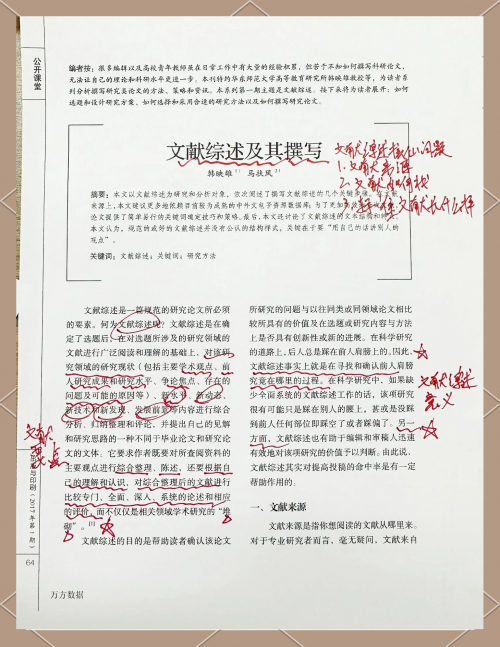 公开课堂
编者按：很多编辑以及高校青年教师虽在日常工作中有大量的经验积累，但苦于不知如何撰写科研论文，
无法让自己的理论和科研水平更进一步。本刊特约华东师范大学高等教育研究所韩映雄教授等，为读者系
列分析撰写研究类论文的方法、策略和资讯。本系列第一期主题是文献综述，接下来将为读者展开：如何
选题和设计研究方案、如何选择和采用合适的研究方法以及如何撰写研究论文。
文献综述及其撰写
韩映雄 1) 马扶风 2)
摘要：本文以文献综述为研究和分析对象，依次阐述了撰写文献综述的几个关键步骤。在文献
来源上，本文建议更多地依赖目前较为成熟的中外文电子资源数据库；为了更加
论文提供了简单易行的关键词确定技巧与策略。最后，本文还讨论了文献综述的文本结构和
本文认为，规范的或好的文献综述并没有公认的结构样式，关键在于要“用自己的话讲别人的
观点”。
关键词：文献综述；关键词；研究方法
1.文献来源
2.文献如何找
文献综述是一篇规范的研究论文所必须
的要素。何为文献综述呢？文献综述是在确
定了选题后，在对选题所涉及的研究领域的
文献进行广泛阅读和理解的基础上，对该研
究领域的研究现状（包括主要学术观点、前
人研究成果和研究水平、争论焦点、存在的
问题及可能的原因等）、新水平、新动态、
新技术和新发现、发展前景等内容进行综合
分析、归纳整理和评论，并提出自己的见解
和研究思路的一种不同于毕业论文和研究论
文的文体。它要求作者既要对所查阅资料的
主要观点进行综合整理、陈述，还要根据自
己的理解和认识，对综合整理后的文献进行
比较专门、全面、深入、系统的论述和相应
的评价，而不仅仅是相关领域学术研究的“堆
砌”。[1]
文献综述的目的是帮助读者确认该论文
所研究的问题与以往同类或同领域论文相比
较所具有的价值及在选题或研究内容与方法
上是否具有创新性或新的进展。在科学研究
的道路上，后人总是踩在前人肩膀上的。因此，
文献综述事实上就是在寻找和确认前人肩膀
究竟在哪里的过程。在科学研究中，如果缺
少全面系统的文献综述工作的话，该项研究
很有可能只是踩在别人的腰上，甚或是没踩
到前人任何部位即踩空了或者踩偏了。另一
方面，文献综述也有助于编辑和审稿人迅速
有效地对该项研究的价值予以判断。由此说，
文献综述其实对提高投稿的命中率是有一定
帮助作用的。
一、文献来源
文献来源是指你想阅读的文献从哪里来。
对于专业研究者而言，毫无疑问，文献来自
文献综述
意义
与印刷（2017年第1期）
64
万方数据